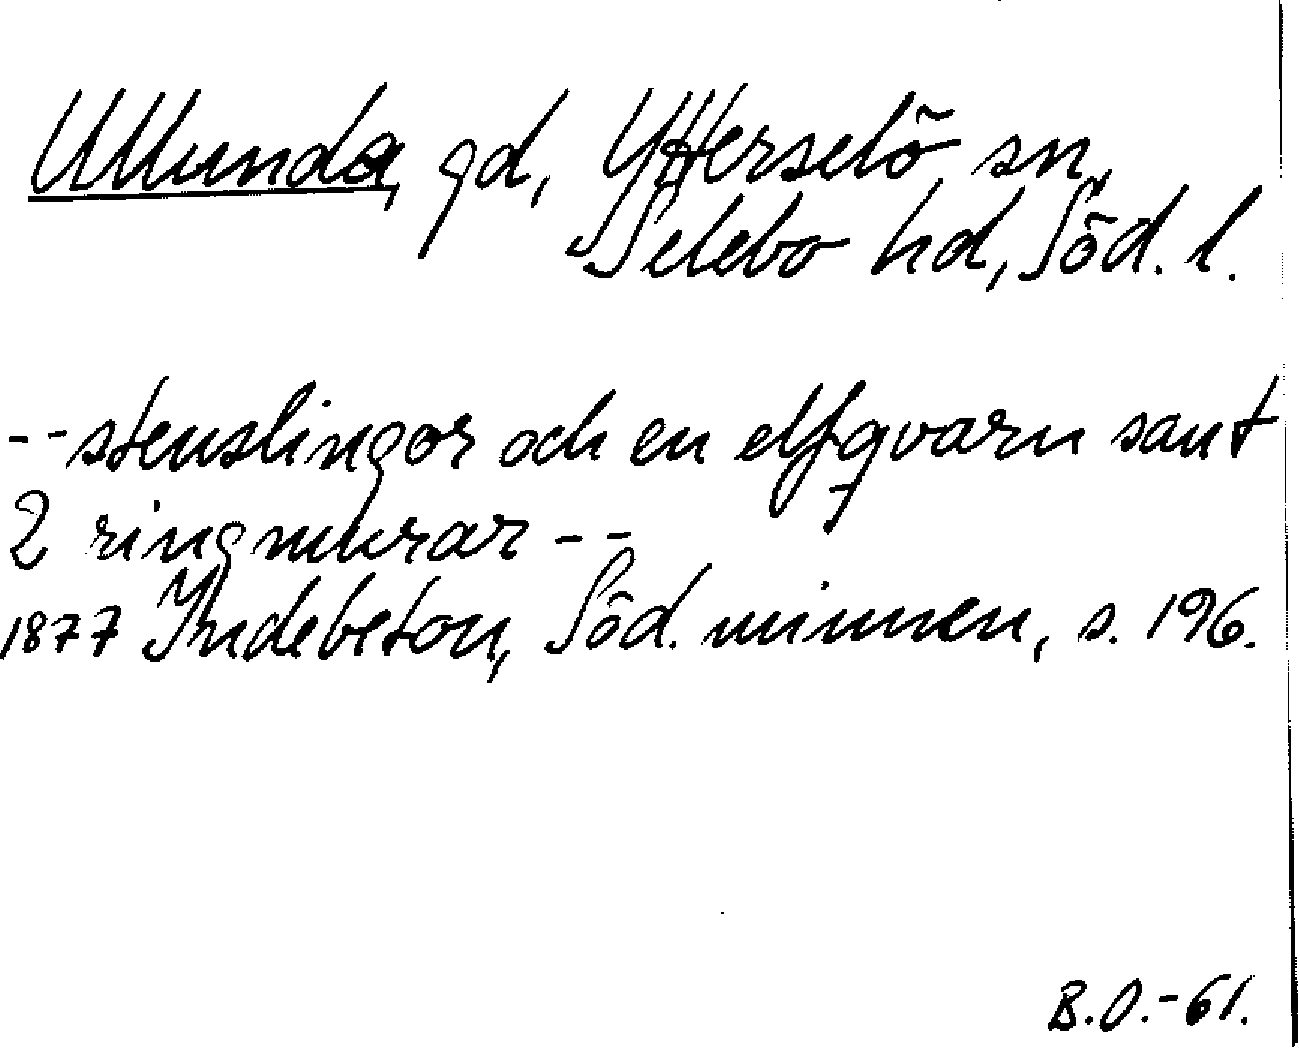 Ullunda, gd, Ytterselö sn,
Selebo hd, Söd. l.
--stenslingor och en elfqvarn samt
2 ringmurar --
1877 Indebetou, Söd. minnen, s. 196.
B.O.-61.